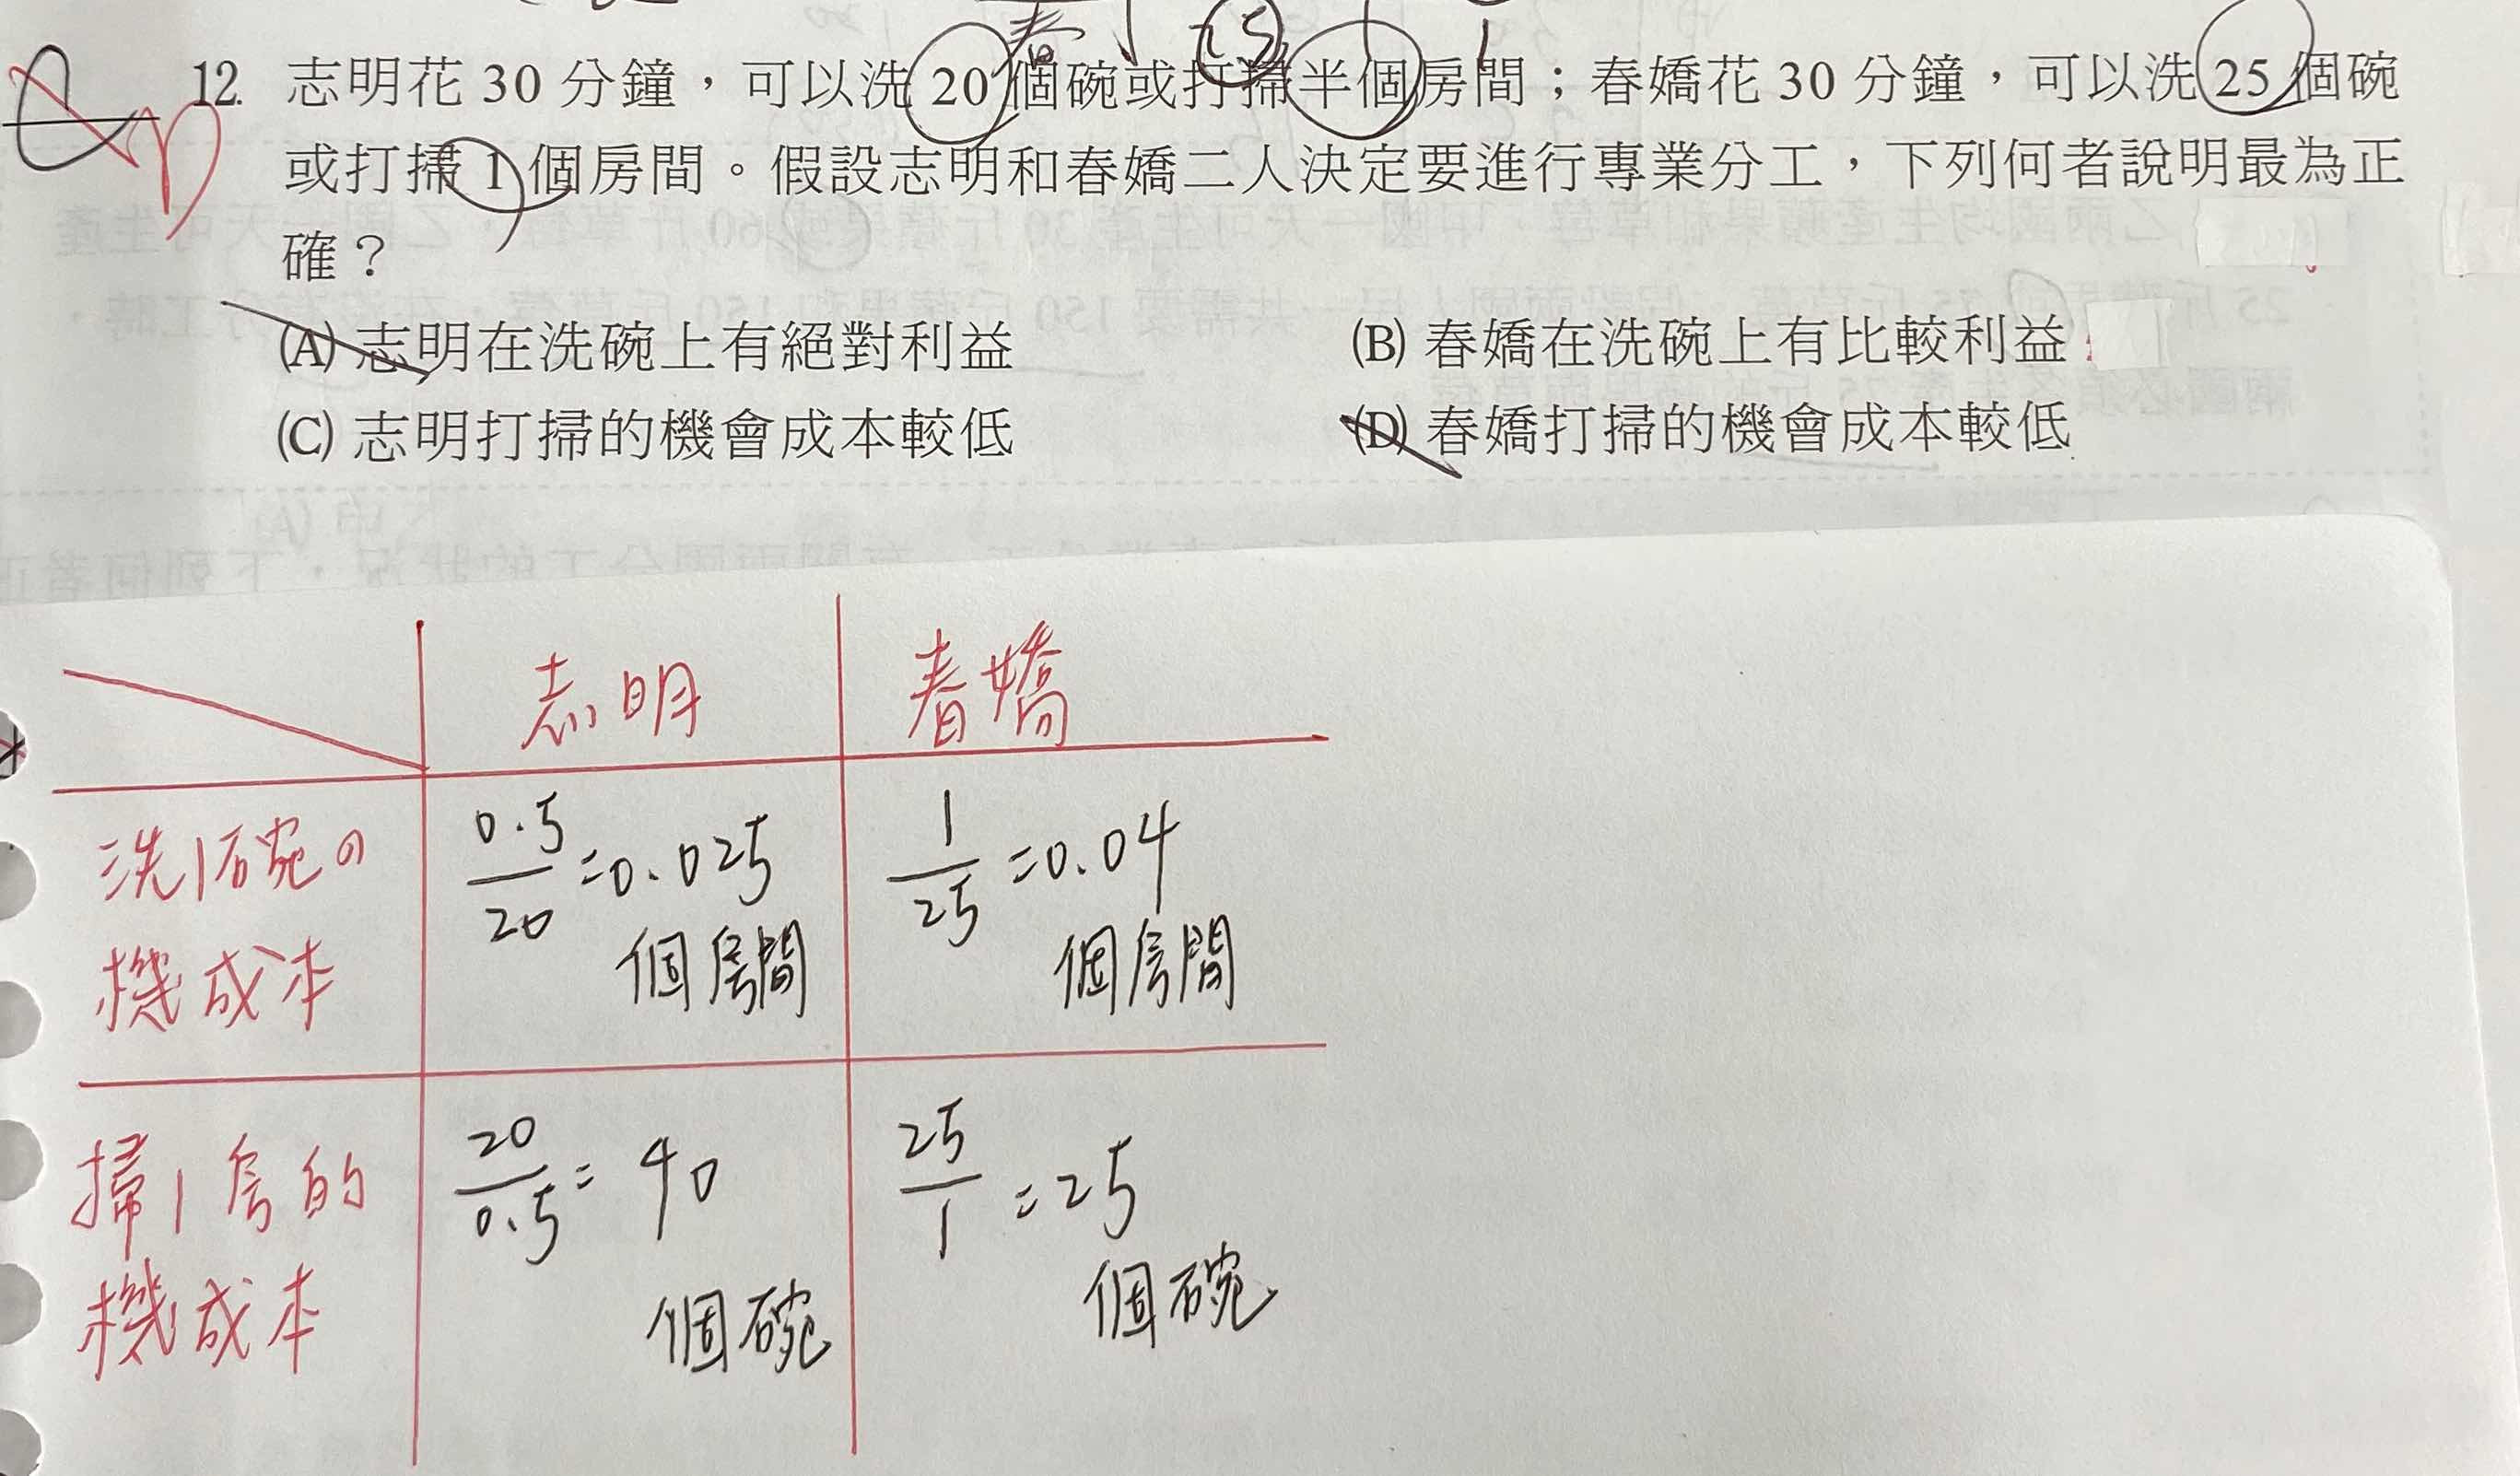 12. 志明花 30 分鐘，可以洗 20 個碗或打掃半個房間；春嬌花 30 分鐘，可以洗 25 個碗
或打掃 1 個房間。假設志明和春嬌二人決定要進行專業分工，下列何者說明最為正
確？
(A) 志明在洗碗上有絕對利益
(B) 春嬌在洗碗上有比較利益
(C) 志明打掃的機會成本較低
(D) 春嬌打掃的機會成本較低
志明
春嬌
洗1碗の
機成本
0.5/20=0.025
個房間
1/25=0.04
個房間
掃1房的
機成本
20/0.5=40
個碗
25/1=25
個碗